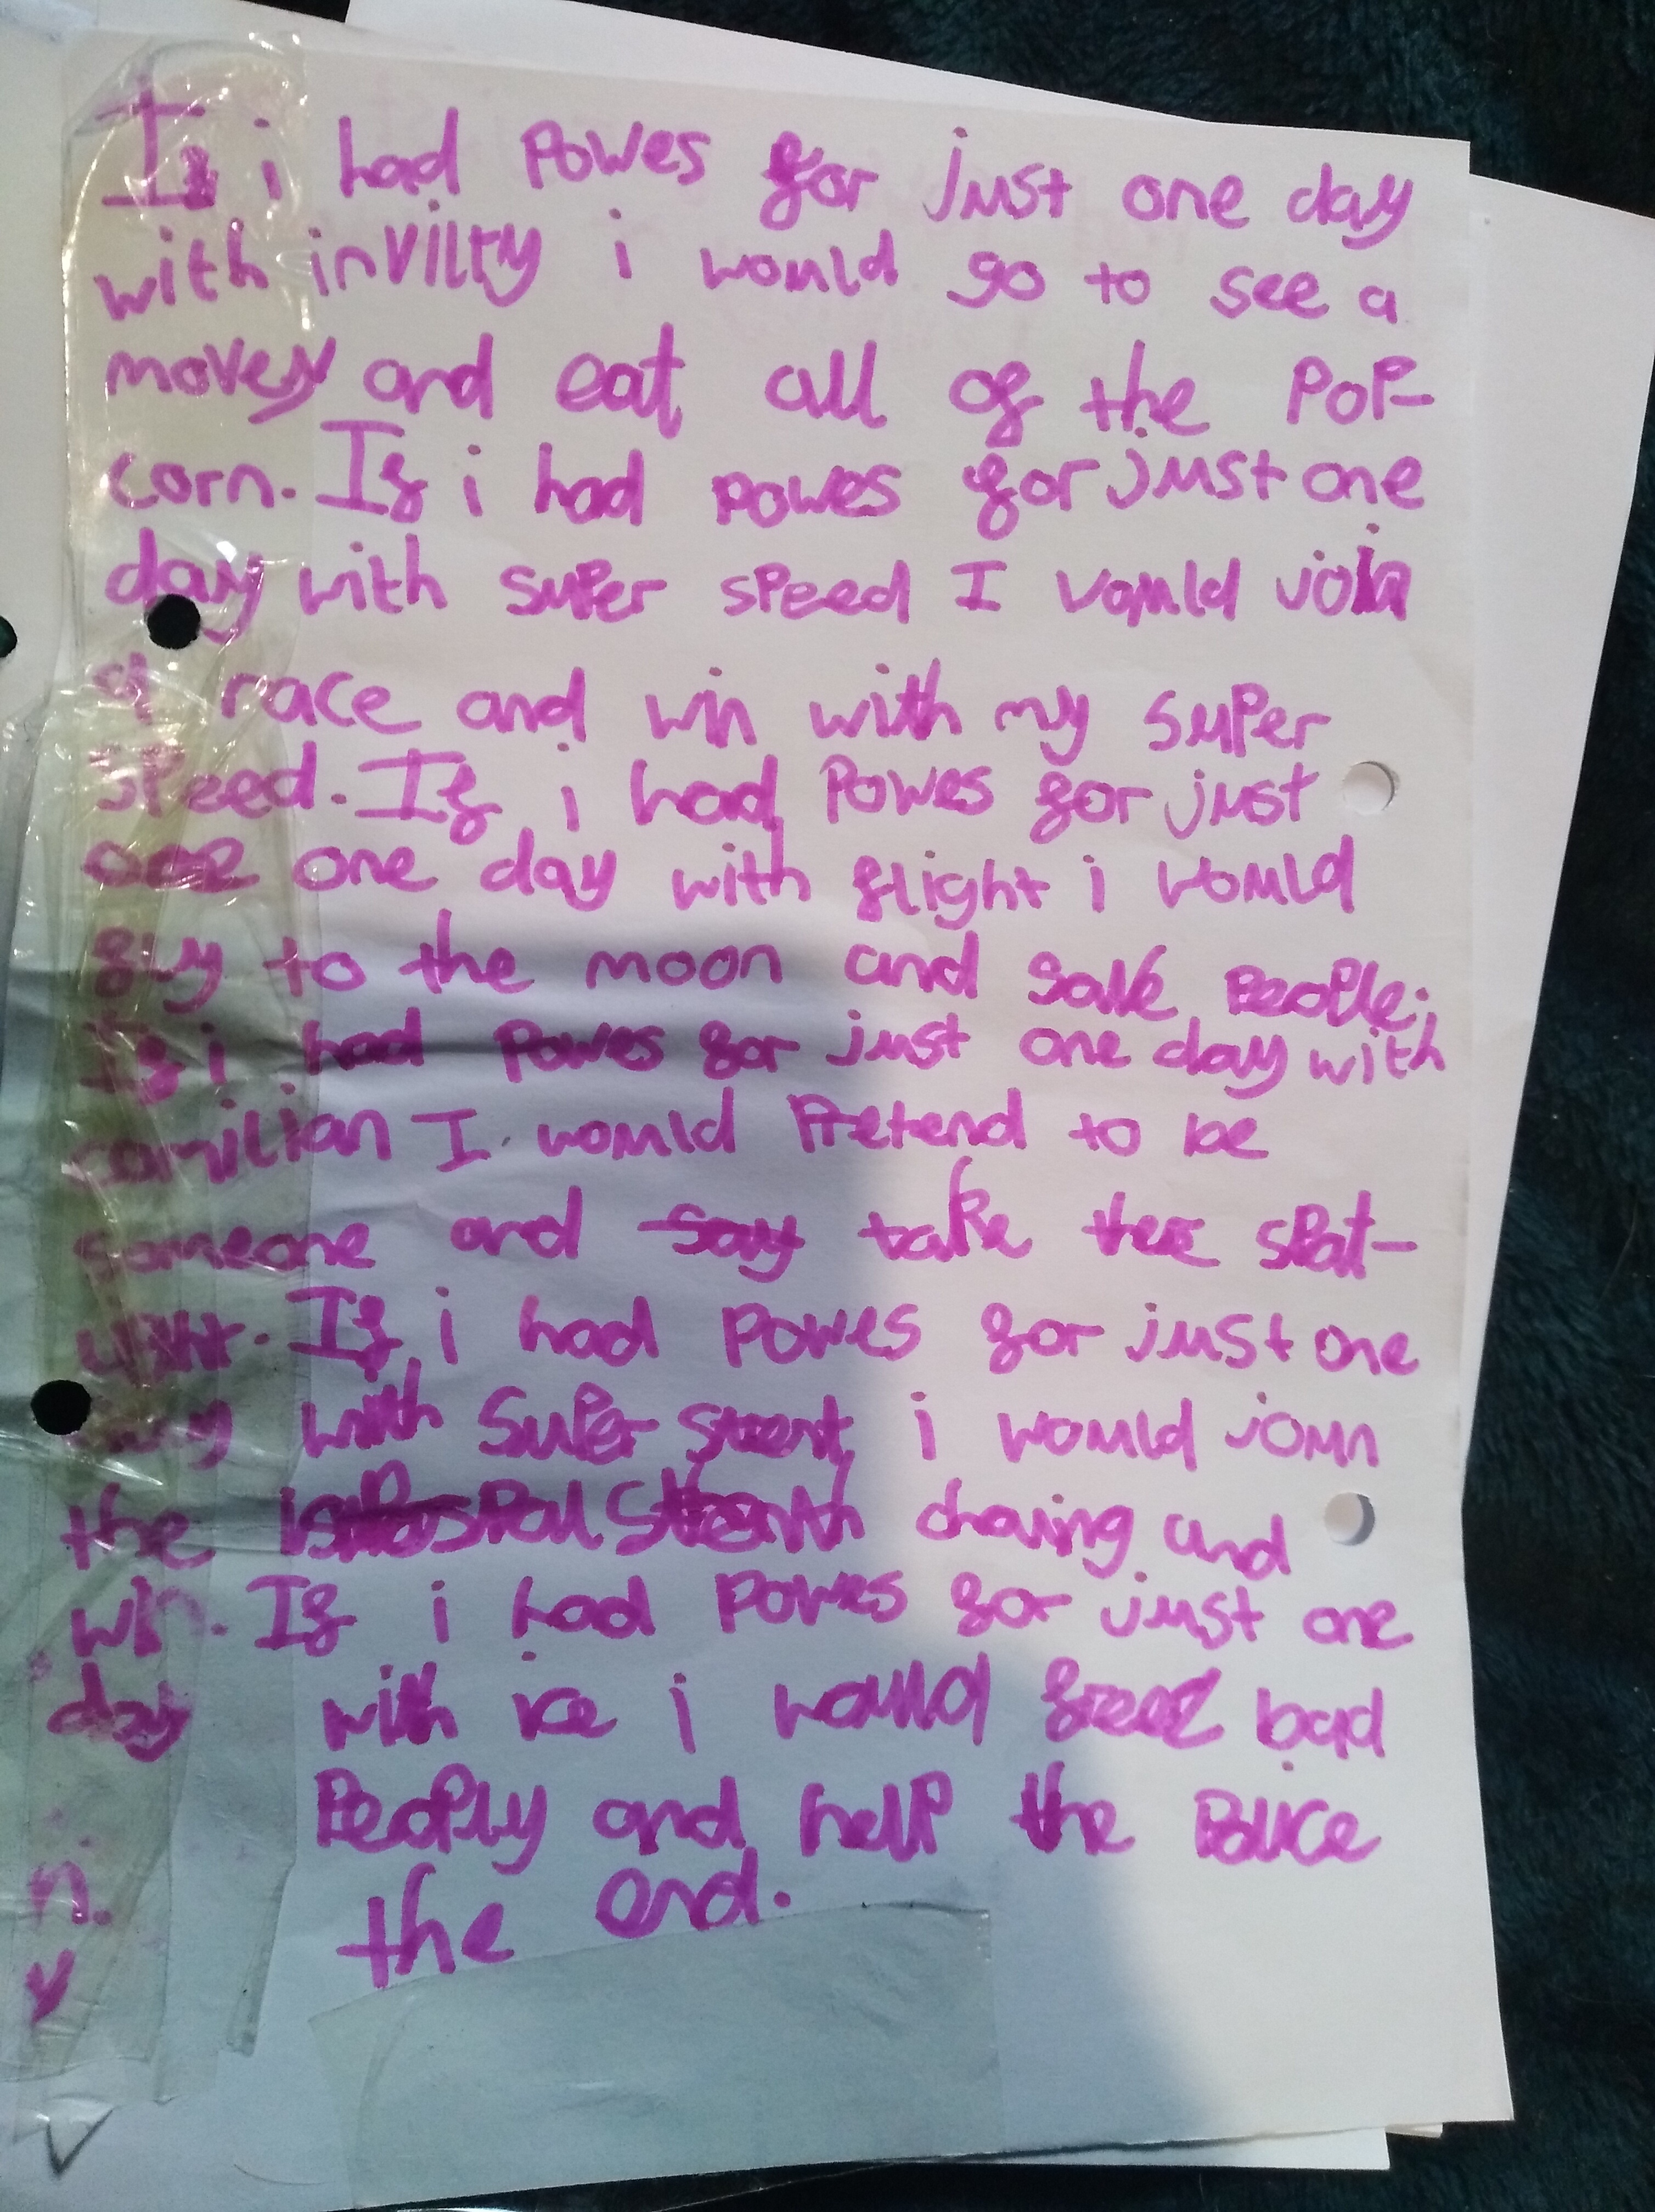 If i had Powes for just one day
with invilty i would go to see a
movey and eat all of the Pop-
corn. If i had powes for just one
day with super speed I would join
a race and win with my super
speed. If i had Powes for just
one day with flight i would
fly to the moon and save People.
If i had Powes for just one day with
camilian I would Pretend to be
someone and say take there spat-
If i had Powes for just one
day with Super i would joun
the and
win. If i had Powes for just one
day with ice i would bad
Peoply and help the Police
the end.
n.
y